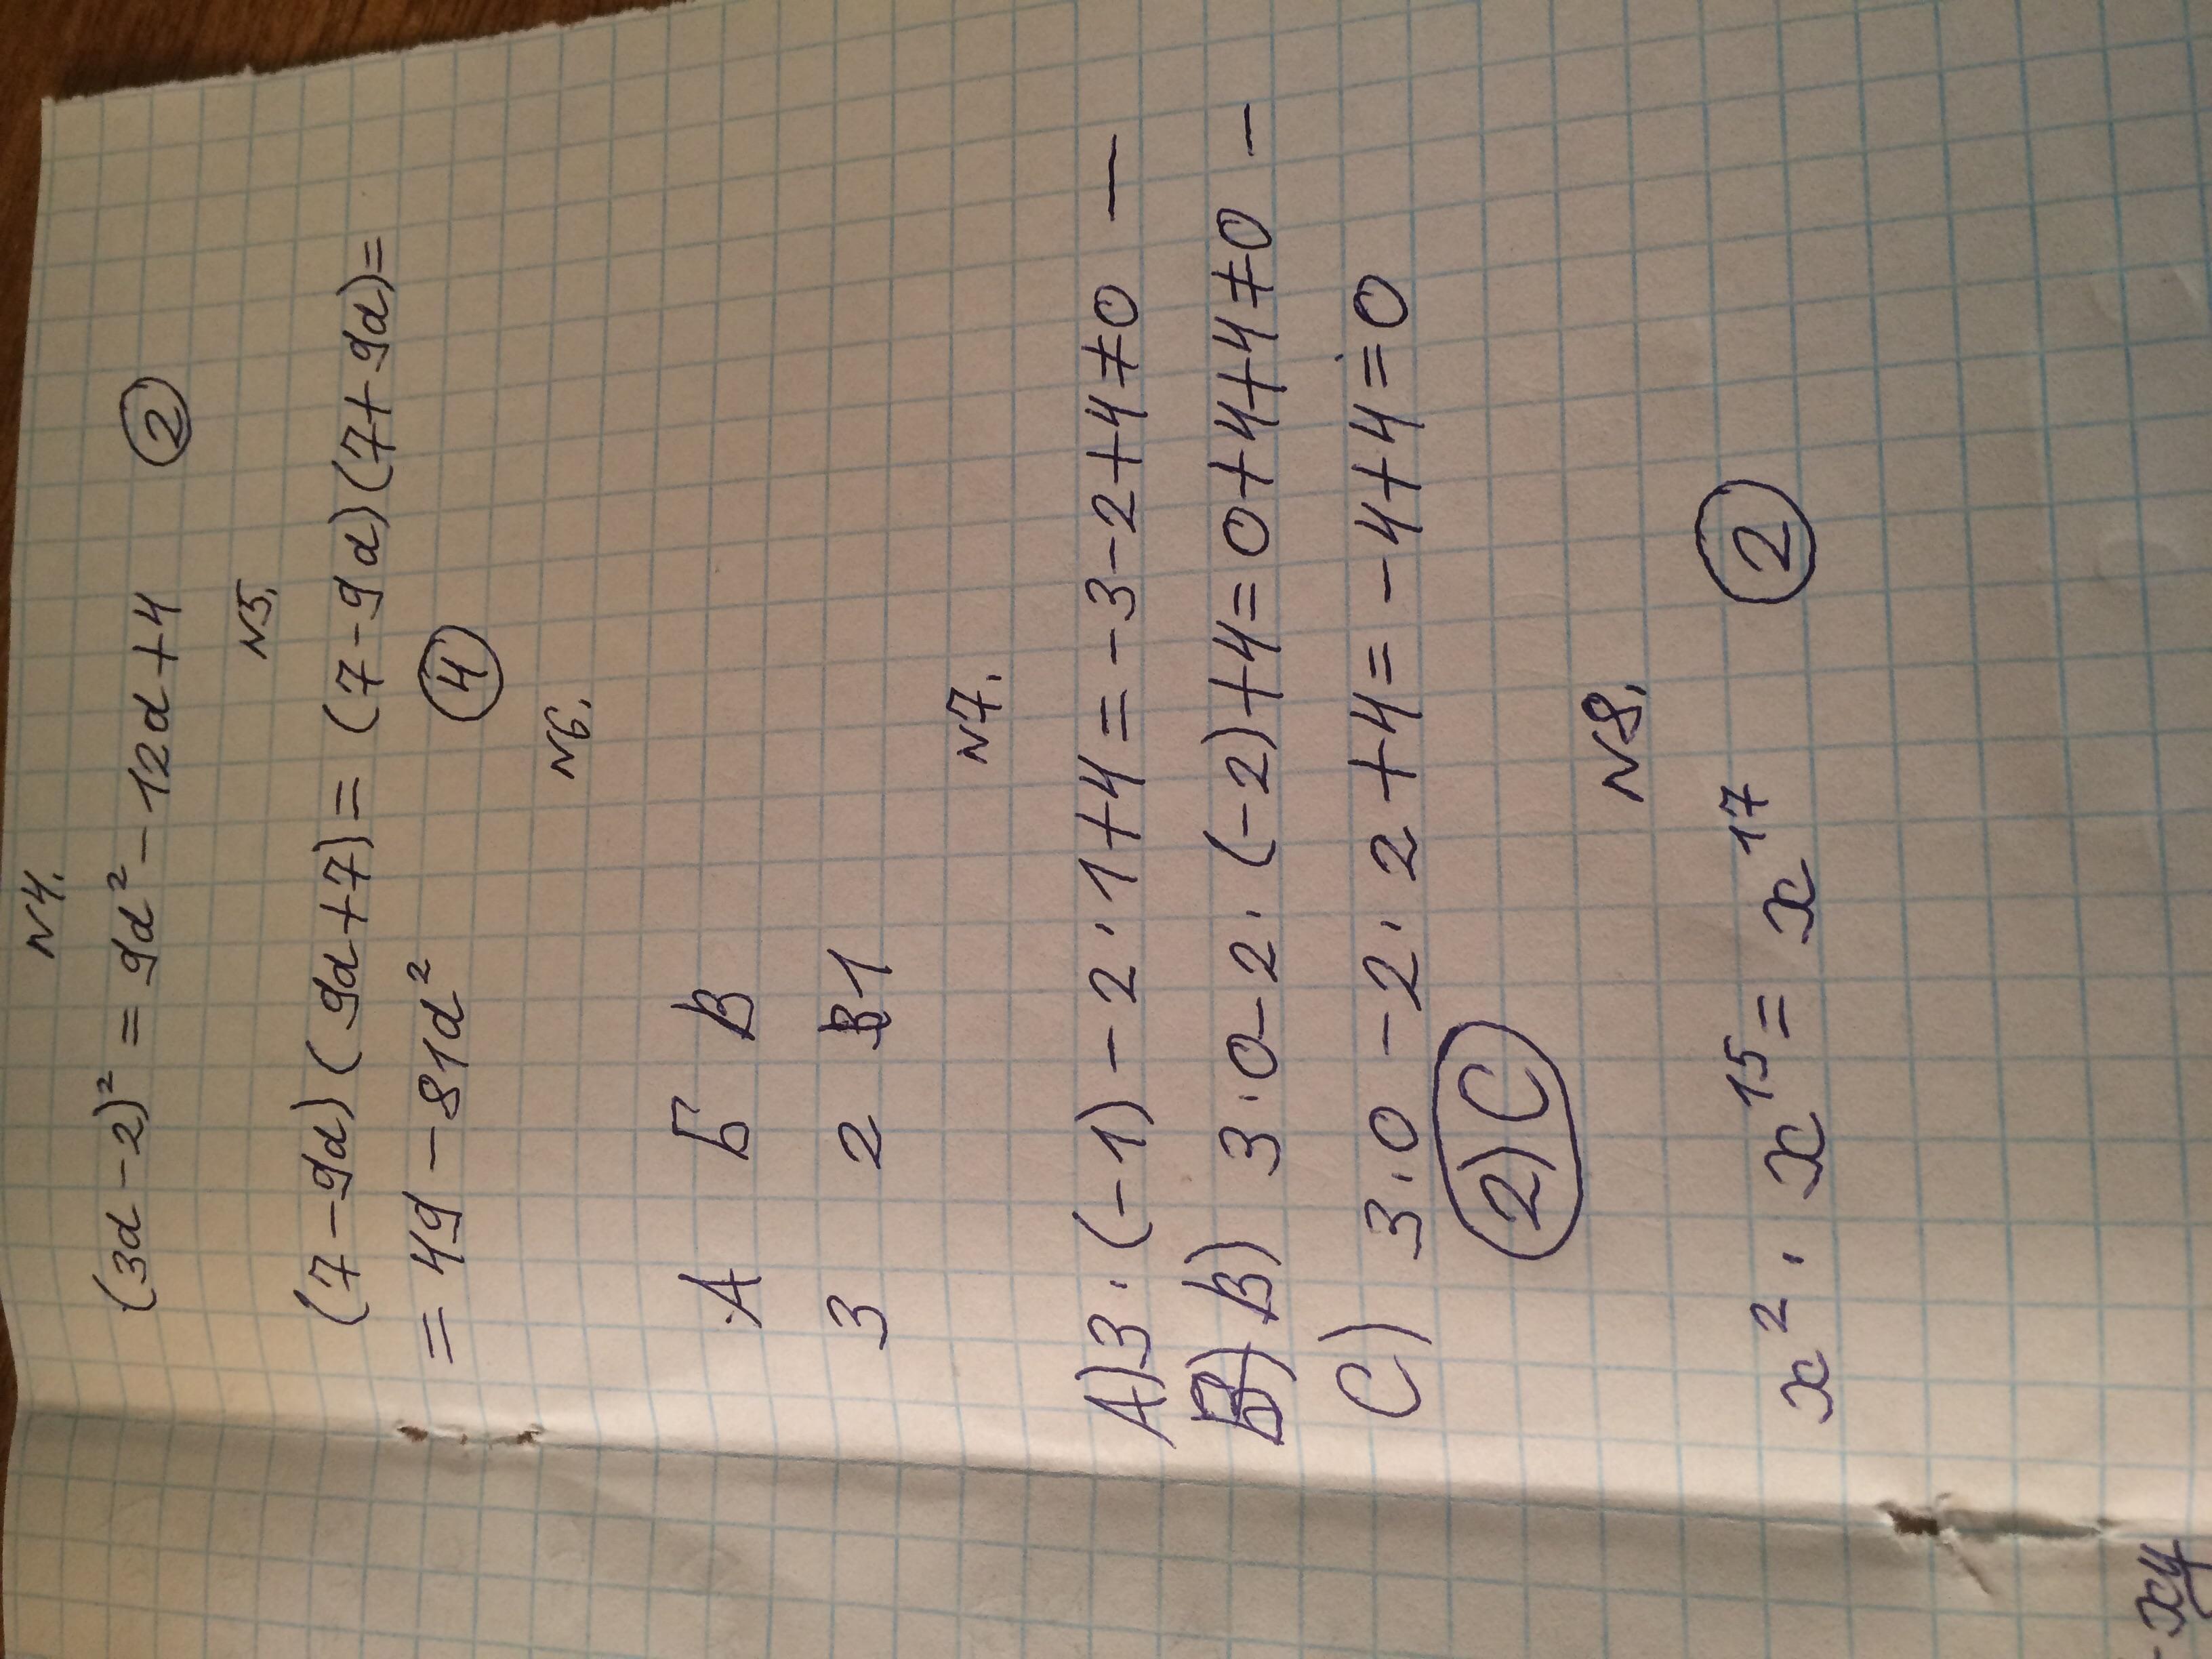 N4.
(3a-2)² = 9a² - 12a + 4 2
N5.
(7-9a)(9a+7) = (7-9a)(7+9a) =
= 49 - 81a² 4
N6.
А Б В
3 2 1
N7.
A) 3·(-1) - 2·1 + 4 = -3 - 2 + 4 ≠ 0 —
B) 3·0 - 2·(-2) + 4 = 0 + 4 + 4 ≠ 0 —
C) 3·0 - 2·2 + 4 = -4 + 4 = 0
2) C
N8.
x² · x¹⁵ = x¹⁷ 2
xy